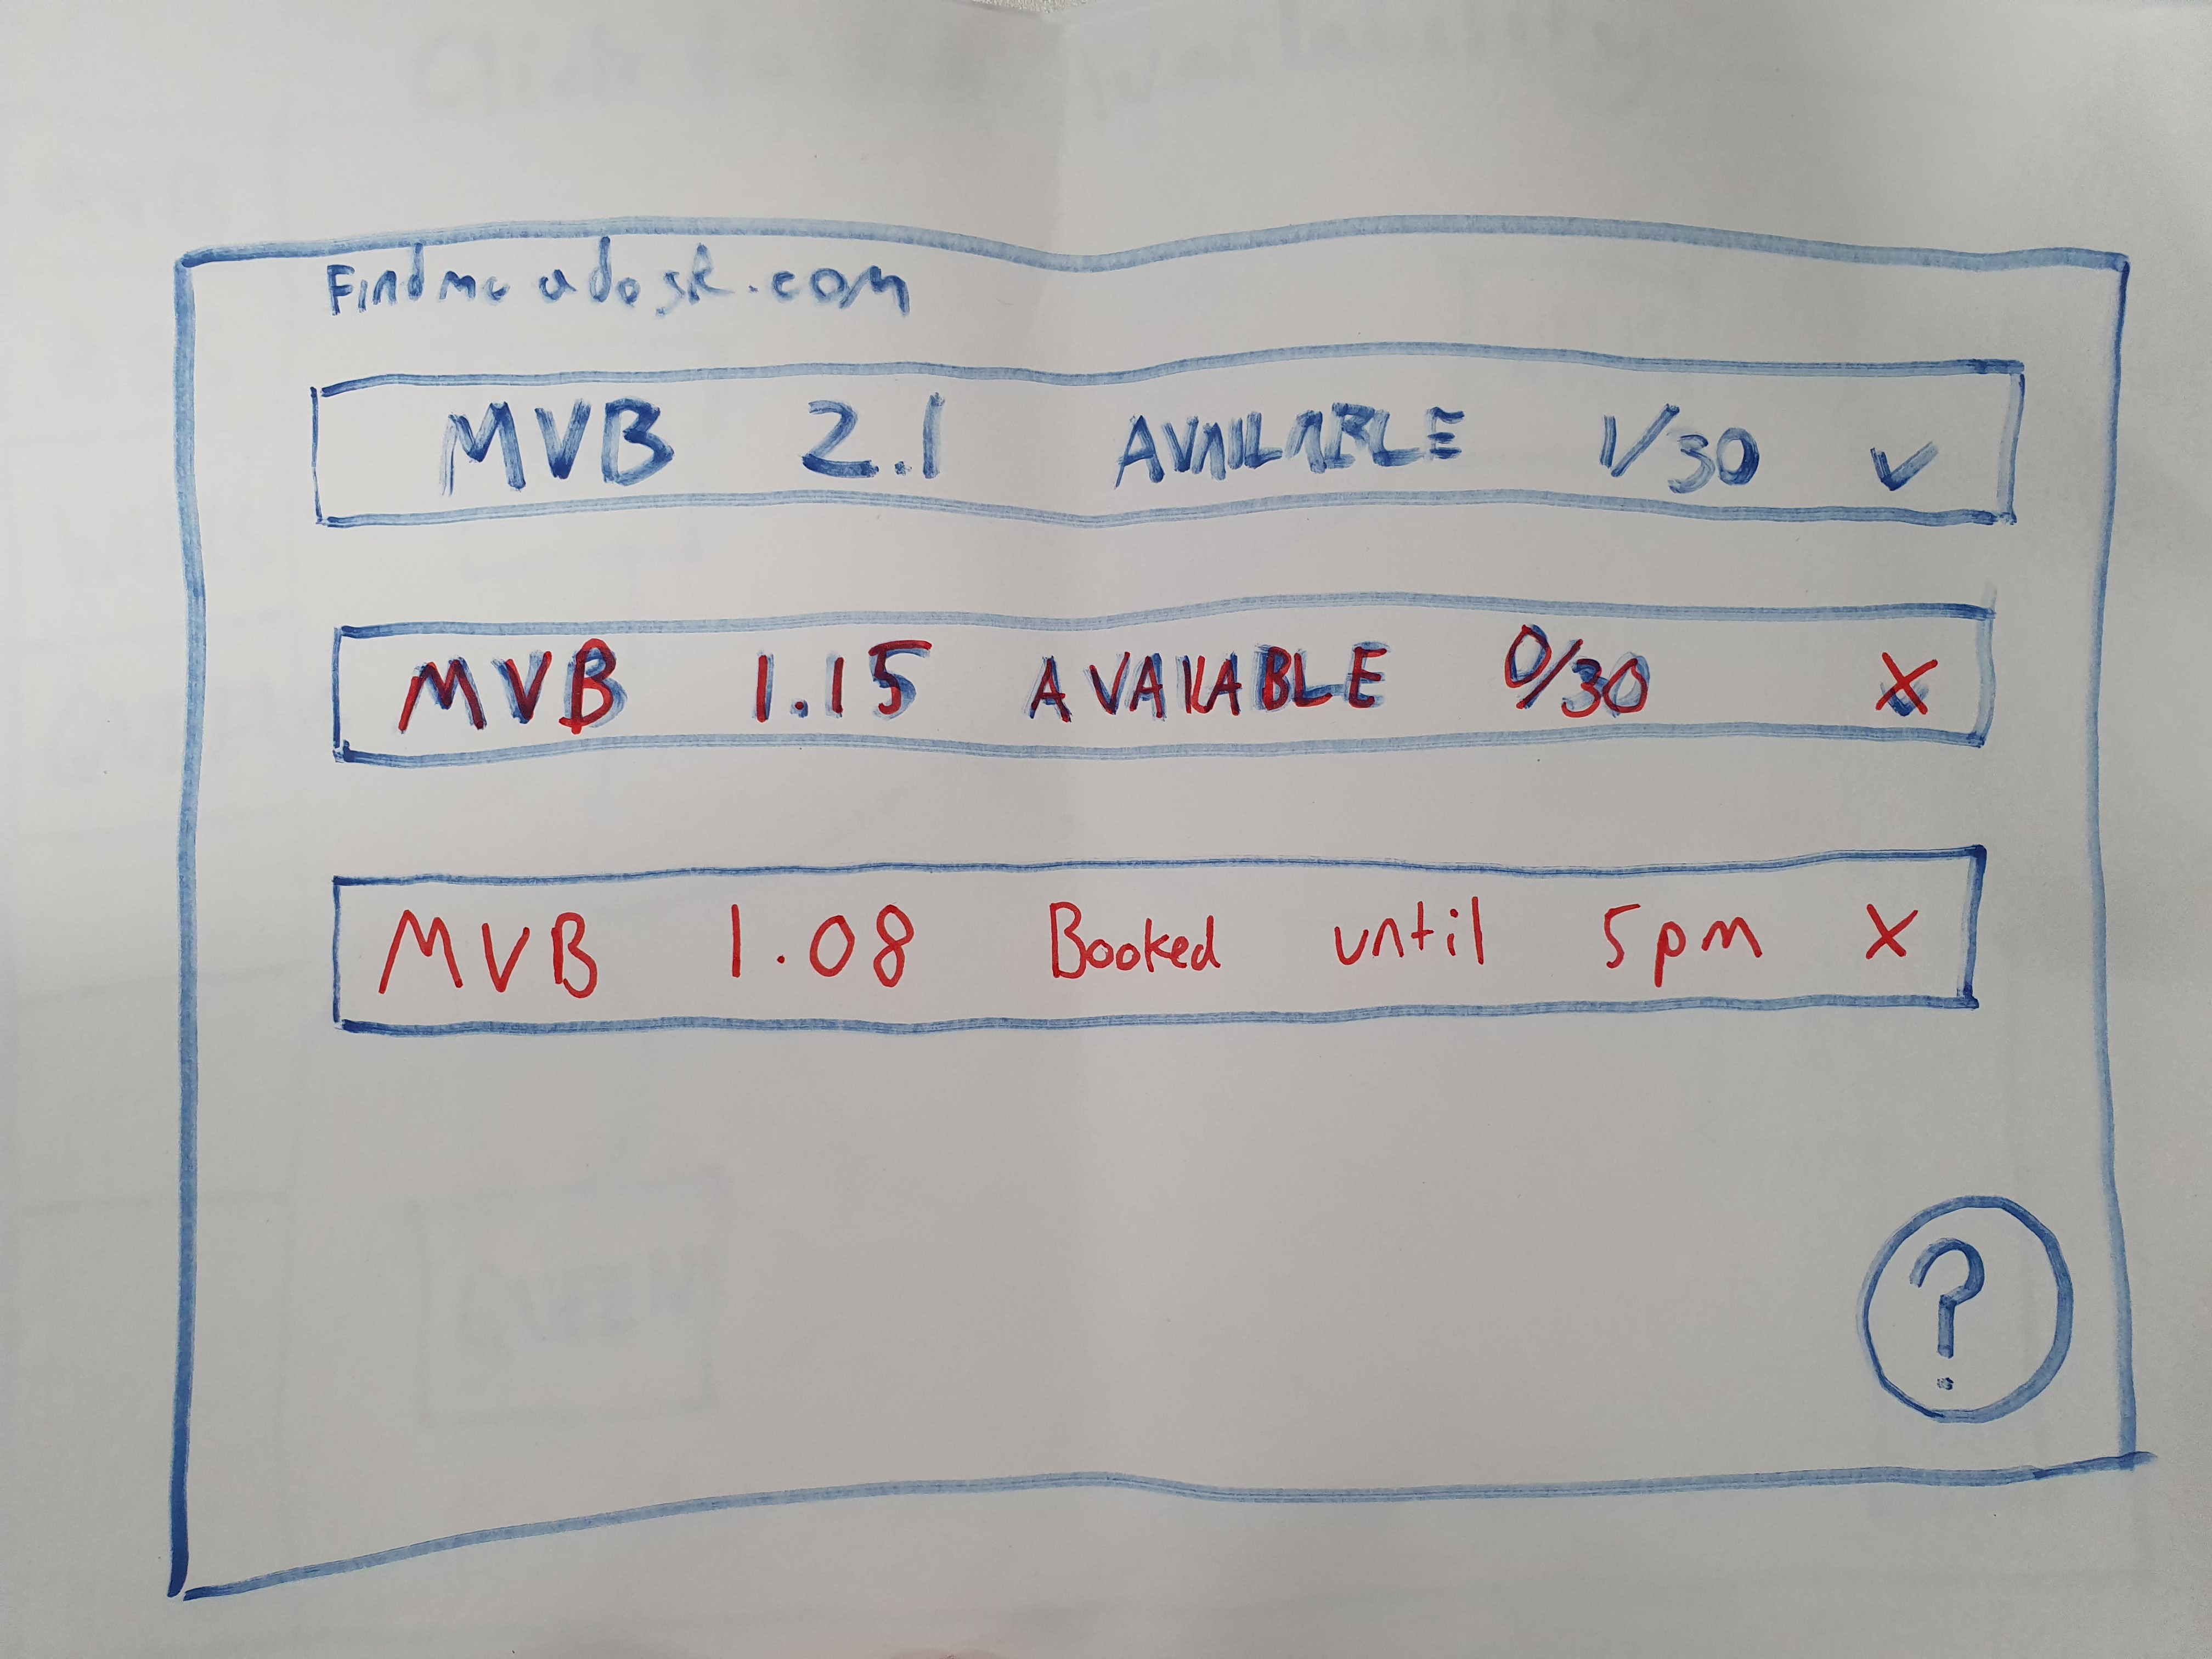 Findmeadesk.com
MVB 2.1 AVAILABLE 1/30 ✓
MVB 1.15 AVAILABLE 0/30 X
MVB 1.08 Booked until 5pm X
?